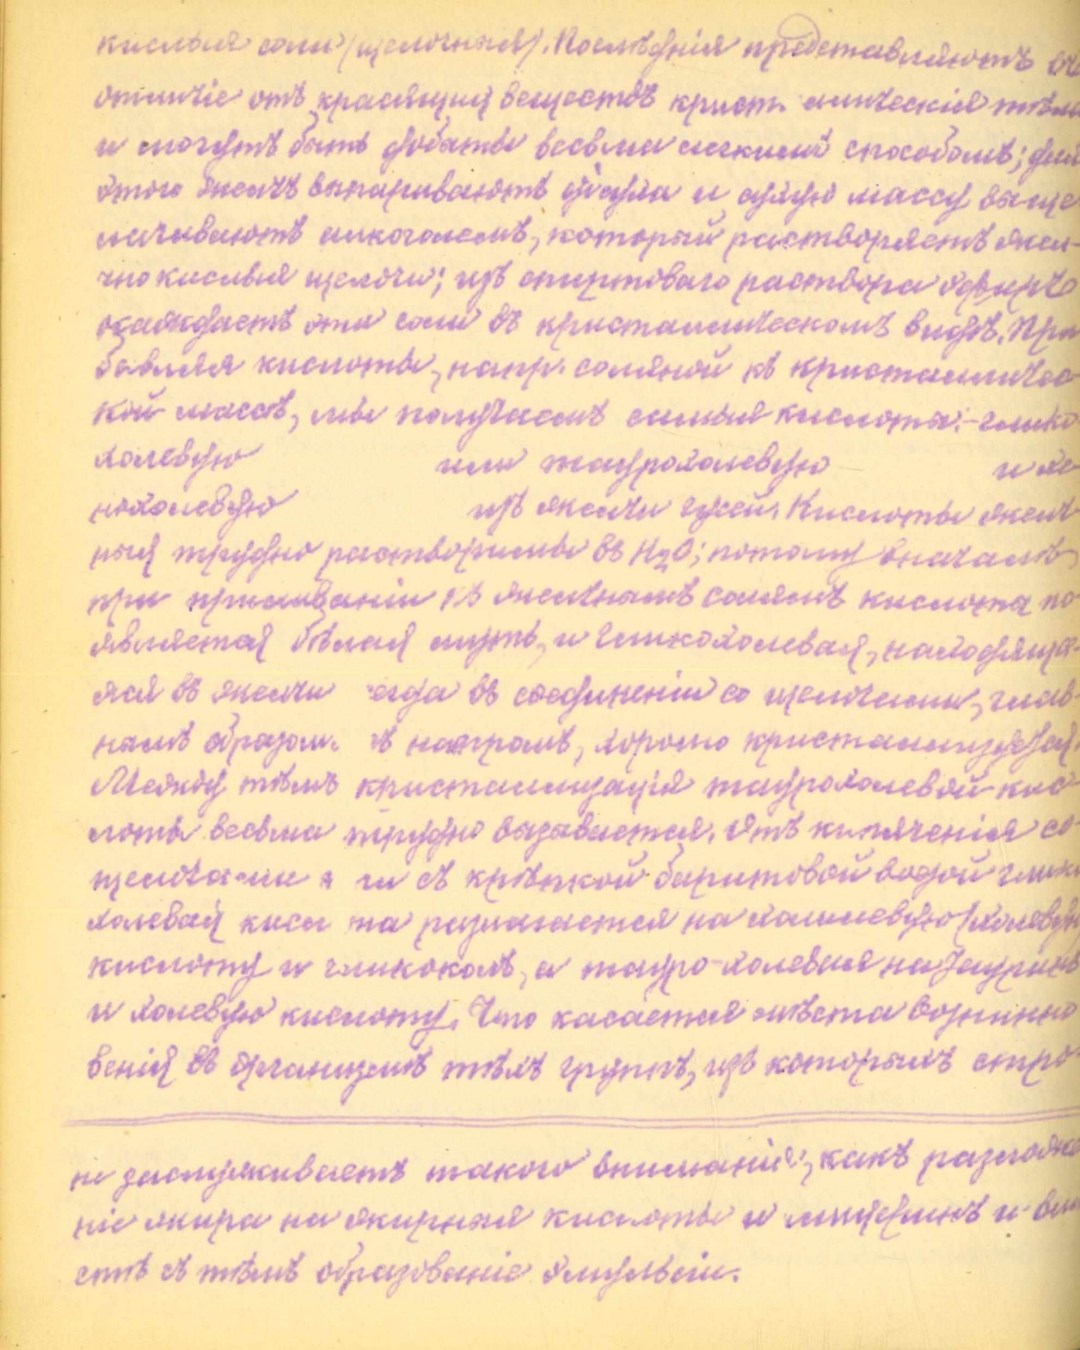 кислыя соли (щелочныя). Послѣднія представляютъ въ
отличіе отъ красящихъ веществъ крист. лическія тѣла
и могутъ быть добыты весьма легкимъ способомъ; для
этого желчь выпариваютъ до суха и сухую массу выще
лачиваютъ алкоголемъ, который растворяетъ желч-
нокислыя щелочи; изъ спиртоваго раствора эфиръ
осаждаетъ эти соли въ кристаллическомъ видѣ. При
бавляя кислоты, напр. соляной къ кристалличес-
кой массѣ, мы получаемъ самыя кислоты: глико
холевую или таурохолевую и хе
нохолевую изъ желчи гусей. Кислоты желч
ныя трудно растворимы въ H2O; потому вначалѣ,
при приливаніи къ желчнымъ солямъ кислоты по
является бѣлая муть, и гликохолевая, находяща-
яся въ желчи въ соединеніи со щелочами, глав-
нымъ образом. съ натромъ, хорошо кристаллизуется.
Между тѣмъ кристаллизація таурохолевой кис
лоты весьма трудно вызывается. Отъ кипяченія со
щелочами и ли съ крѣпкой баритовой водой глико
холевая кисл та разлагается на холалевую (холевую)
кислоту и гликоколь, а тауро-холевая на тауринъ
и холевую кислоту. Что касается мѣста возникно
венія въ организмѣ тѣхъ группъ, изъ которыхъ стро
не заслуживаетъ такого вниманія, какъ разложе
ніе жира на жирныя кислоты и глицеринъ и вмѣ
стѣ съ тѣмъ образованіе эмульсіи.